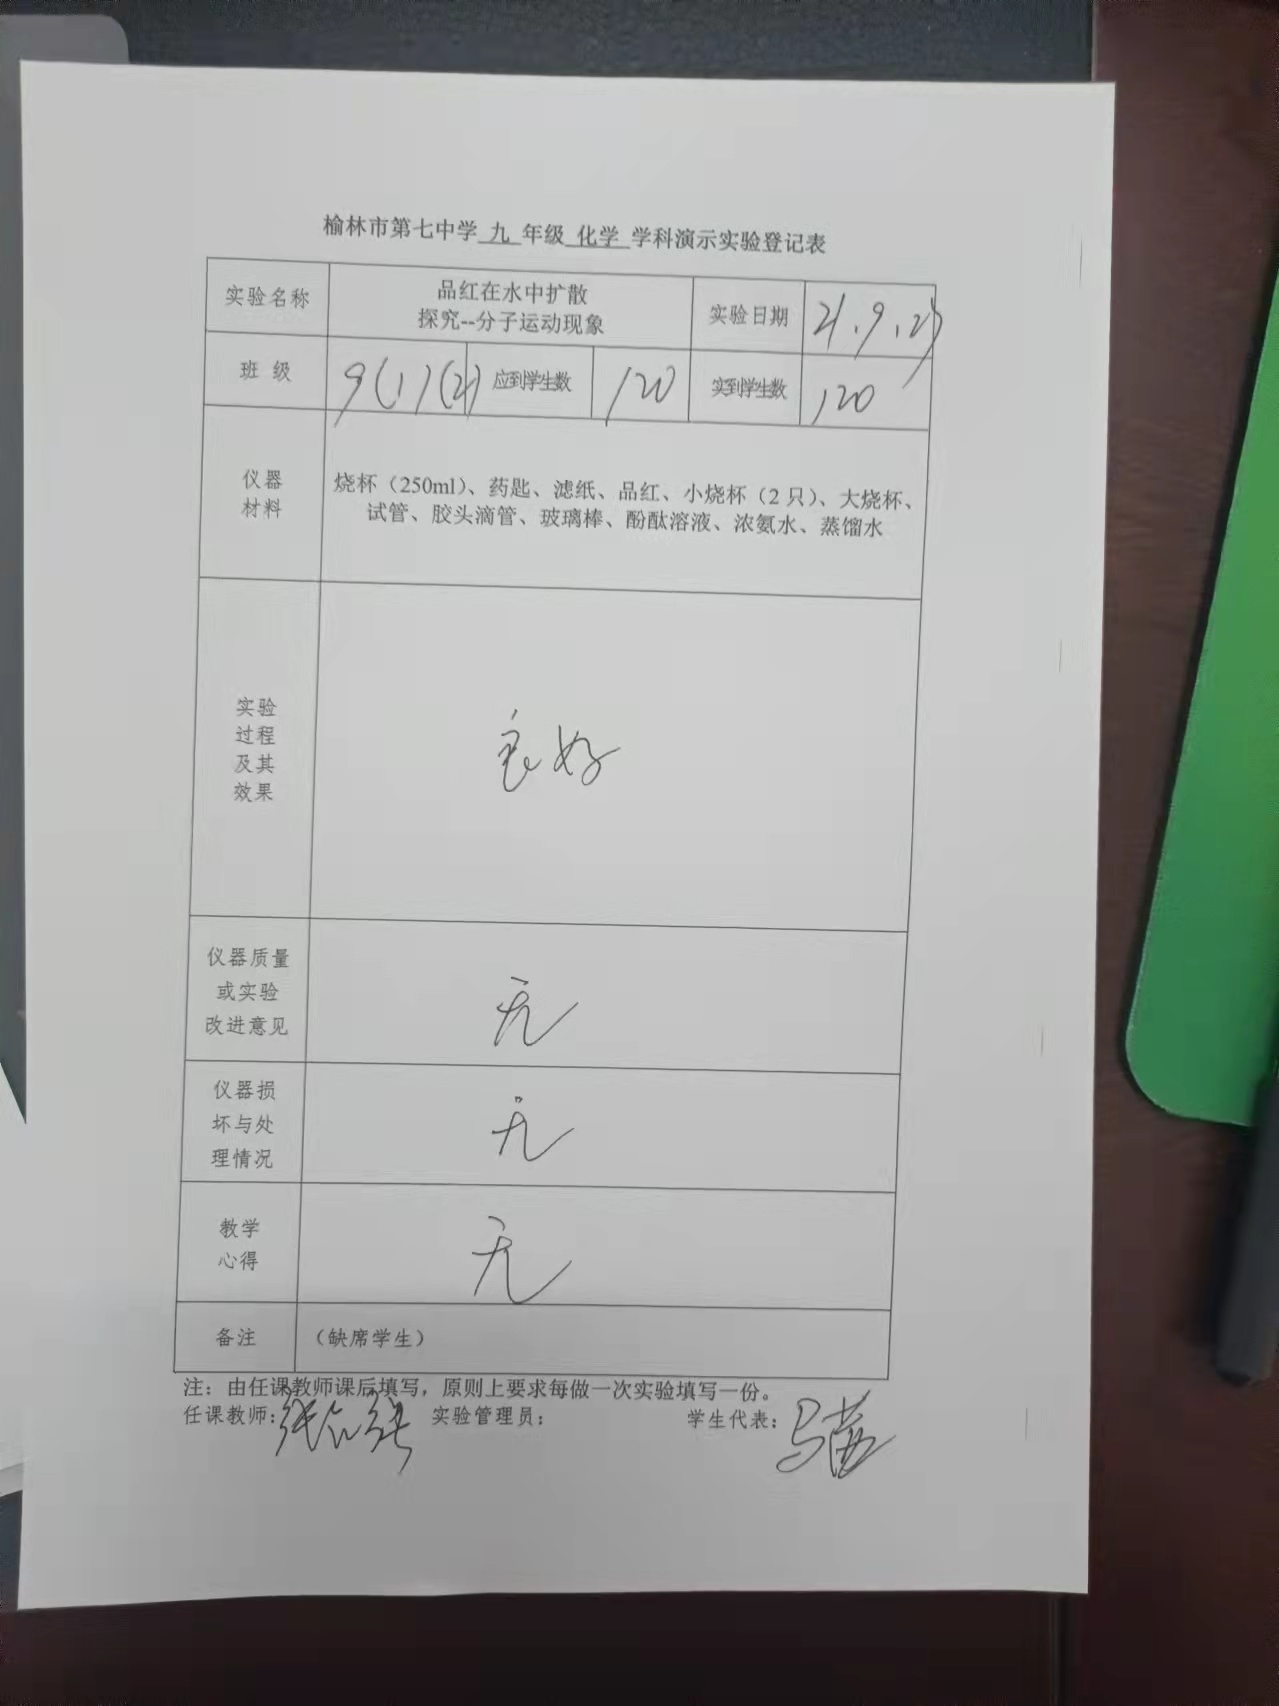 榆林市第七中学 九 年级 化学 学科演示实验登记表
实验名称 品红在水中扩散 实验日期
探究--分子运动现象
班 级 9(1)(2) 应到学生数 120 实到学生数 120
仪器
材料
烧杯（250ml）、药匙、滤纸、品红、小烧杯（2 只）、大烧杯、
试管、胶头滴管、玻璃棒、酚酞溶液、浓氨水、蒸馏水
实验
过程
及其
效果
良好
仪器质量
或实验
改进意见
无
仪器损
坏与处
理情况
无
教学
心得
无
备注 （缺席学生）
注：由任课教师课后填写，原则上要求每做一次实验填写一份。
任课教师: 实验管理员： 学生代表：